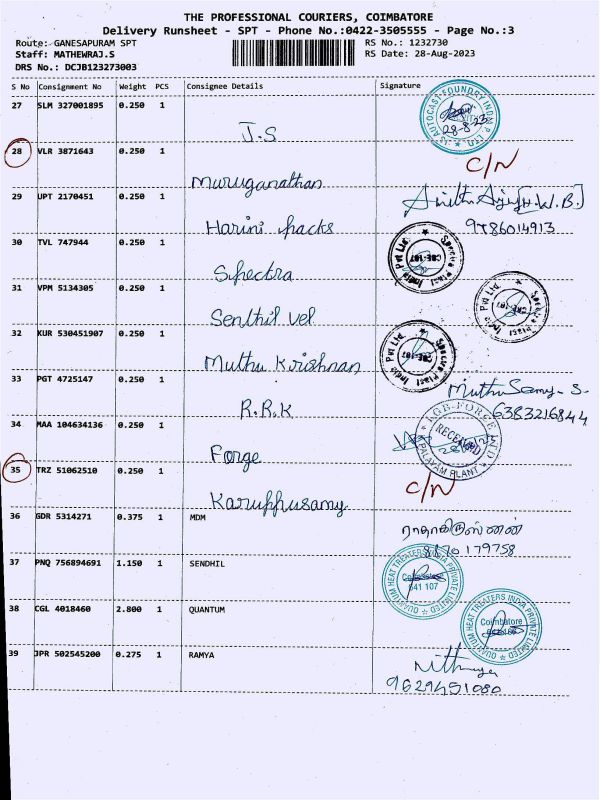 THE PROFESSIONAL COURIERS, COIMBATORE
Delivery Runsheet - SPT - Phone No.:0422-3505555 - Page No.:3
Route: GANESAPURAM SPT RS No.: 1232730
Staff: MATHEWRAJ.S RS Date: 28-Aug-2023
DRS No.: DCJB123273003
S No Consignment No Weight PCS Consignee Details Signature
27 SLM 327001895 0.250 1
J.S
AUTOCAST FOUNDRY INDIA P LTD.
28-8-23
28 VLR 3871643 0.250 1 C/N
Muruganathan
29 UPT 2170451 0.250 1
Harini packs 9486014913
30 TVL 747944 0.250 1
Spectra
Spectra Plast India Pvt Ltd. CBE-107
31 VPM 5134305 0.250 1
Senthil vel
Spectra Plast India Pvt Ltd. CBE-107
32 KUR 530451907 0.250 1
Muthu Krishnan
Spectra Plast India Pvt Ltd. CBE-107
33 PGT 4725147 0.250 1 Muthu Samy. S.
R.R.K 6383216844
34 MAA 104634136 0.250 1
Forge
RECEIVED
35 TRZ 51062510 0.250 1 C/N
Karuppusamy
36 GDR 5314271 0.375 1 MDM
8870179758
37 PNQ 756894691 1.150 1 SENDHIL
QUANTUM HEAT TREATERS INDIA PRIVATE LIMITED Coimbatore 641 107
38 CGL 4018460 2.800 1 QUANTUM
QUANTUM HEAT TREATERS INDIA PRIVATE LIMITED Coimbatore
39 JPR 502545200 0.275 1 RAMYA
Nithya
9629451080